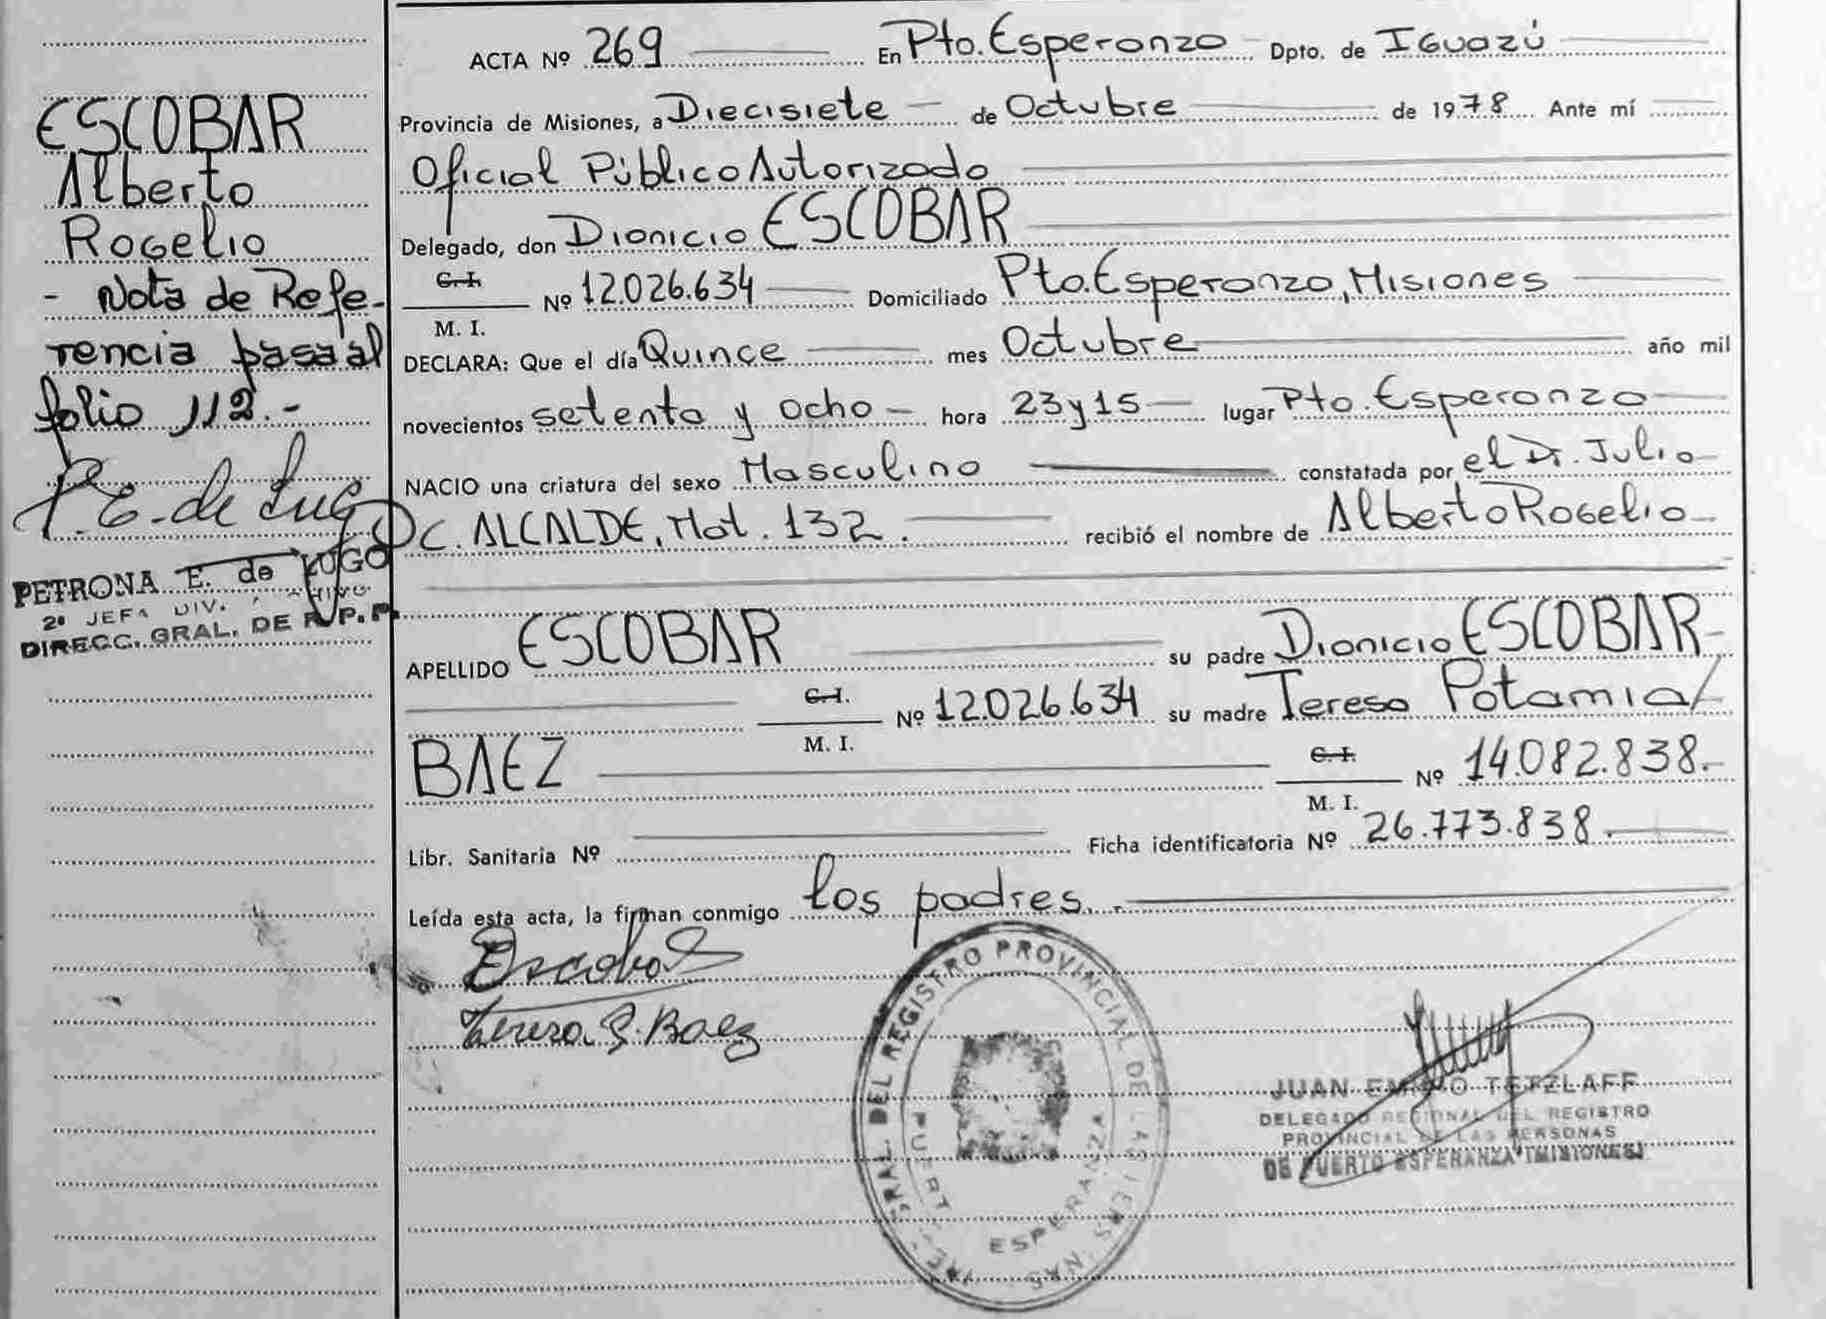 ESCOBAR
Alberto
Rogelio
- Nota de Refe-
rencia pasa al
folio 112.-
P. E. de Lugo
PETRONA E. de LUGO
2ª JEFA DIV. ARCHIVO
DIRECC. GRAL. DE R. P. P.
ACTA Nº 269 En Pto. Esperanza Dpto. de Iguazú
Provincia de Misiones, a Diecisiete de Octubre de 1978 Ante mí
Oficial Público Autorizado
Delegado, don Dionicio ESCOBAR
C. I.
M. I. Nº 12.026.634 Domiciliado Pto. Esperanza, Misiones
DECLARA: Que el día Quince mes Octubre año mil
novecientos setenta y ocho - hora 23 y 15 lugar Pto. Esperanza
NACIO una criatura del sexo Masculino constatada por el Dr. Julio
C. ALCALDE, Mat. 132. recibió el nombre de Alberto Rogelio
APELLIDO ESCOBAR su padre Dionicio ESCOBAR
C. I.
M. I. Nº 12.026.634 su madre Teresa Potamia
BAEZ C. I.
M. I. Nº 14.082.838.-
Libr. Sanitaria Nº Ficha identificatoria Nº 26.773.838.
Leída esta acta, la firman conmigo los padres. -
Escobar
Teresa P. Baez
GRAL. DEL REGISTRO PROVINCIAL DE LAS PERSONAS
PUERTO ESPERANZA
JUAN EMILIO TETZLAFF
DELEGADO REGIONAL DEL REGISTRO
PROVINCIAL DE LAS PERSONAS
DE PUERTO ESPERANZA (MISIONES)